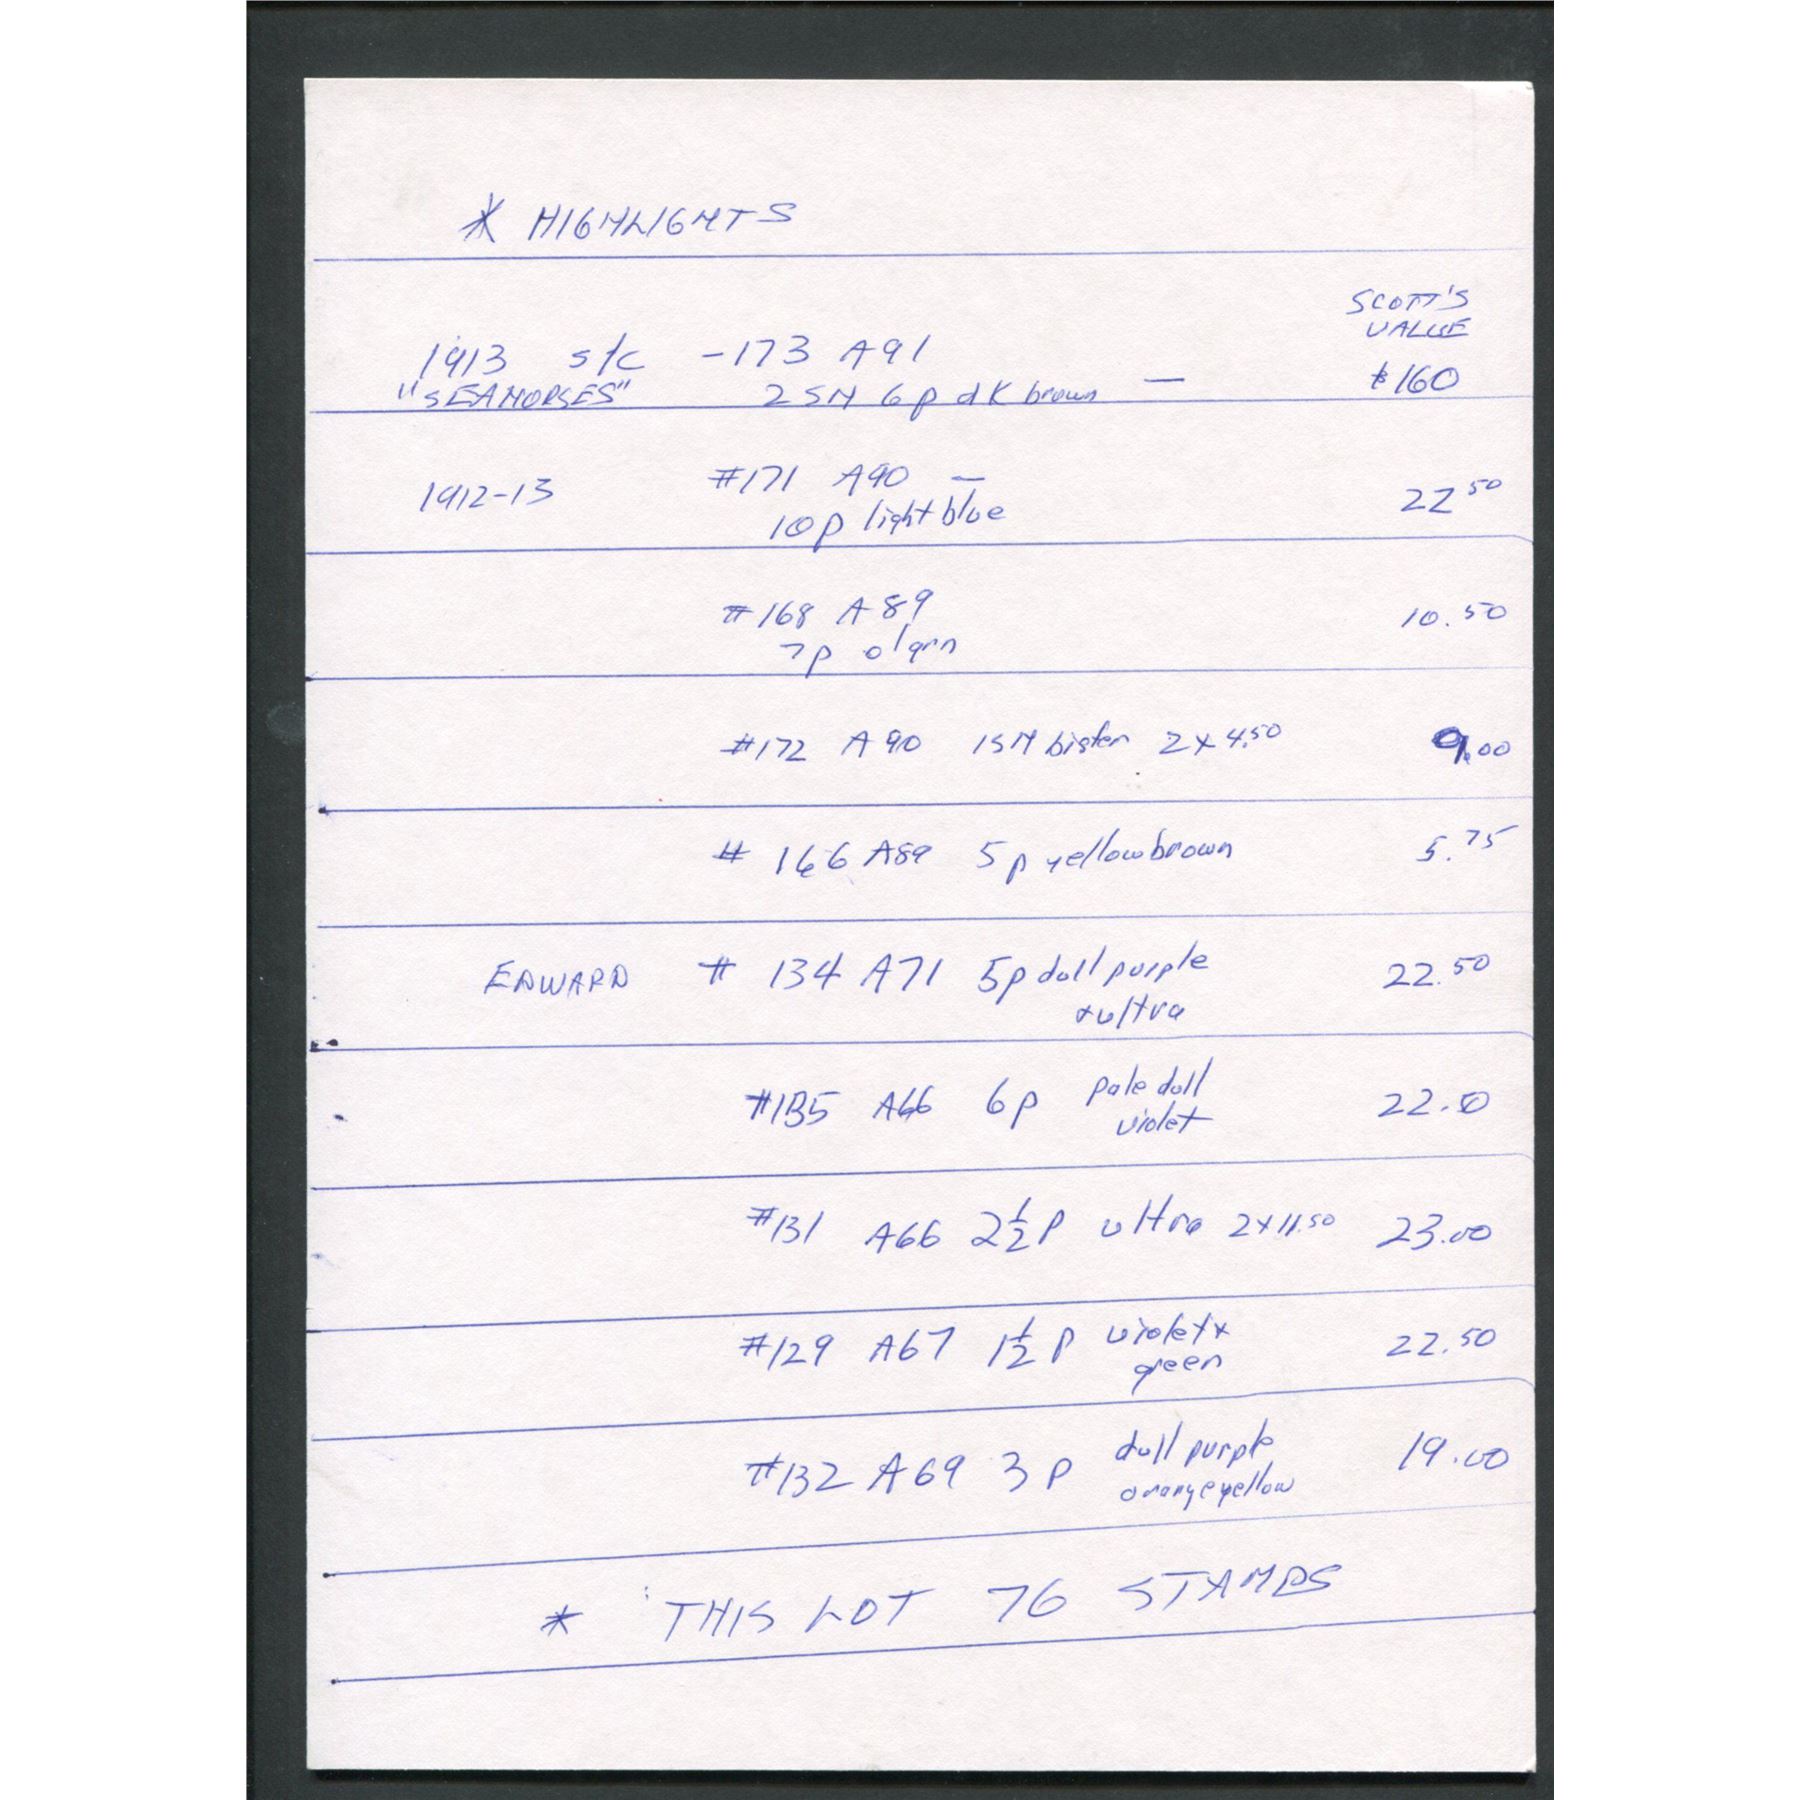 * HIGHLIGHTS
SCOTT'S
VALUE
1913 s/c -173 A91
"SEAHORSES" 2SH 6p dK brown — $160
1912-13 #171 A90 — 22 50
10p light blue
#168 A89 10.50
7p olgrn
#172 A90 1SH bister 2x4.50 9.00
# 166 A89 5p yellowbrown 5.75
EDWARD # 134 A71 5p dull purple 22.50
+ultra
#135 A66 6p pale dull 22.50
violet
#131 A66 2½p ultra 2x11.50 23.00
#129 A67 1½p violet+ 22.50
green
#132 A69 3p dull purple 19.00
orangeyellow
* THIS LOT 76 STAMPS